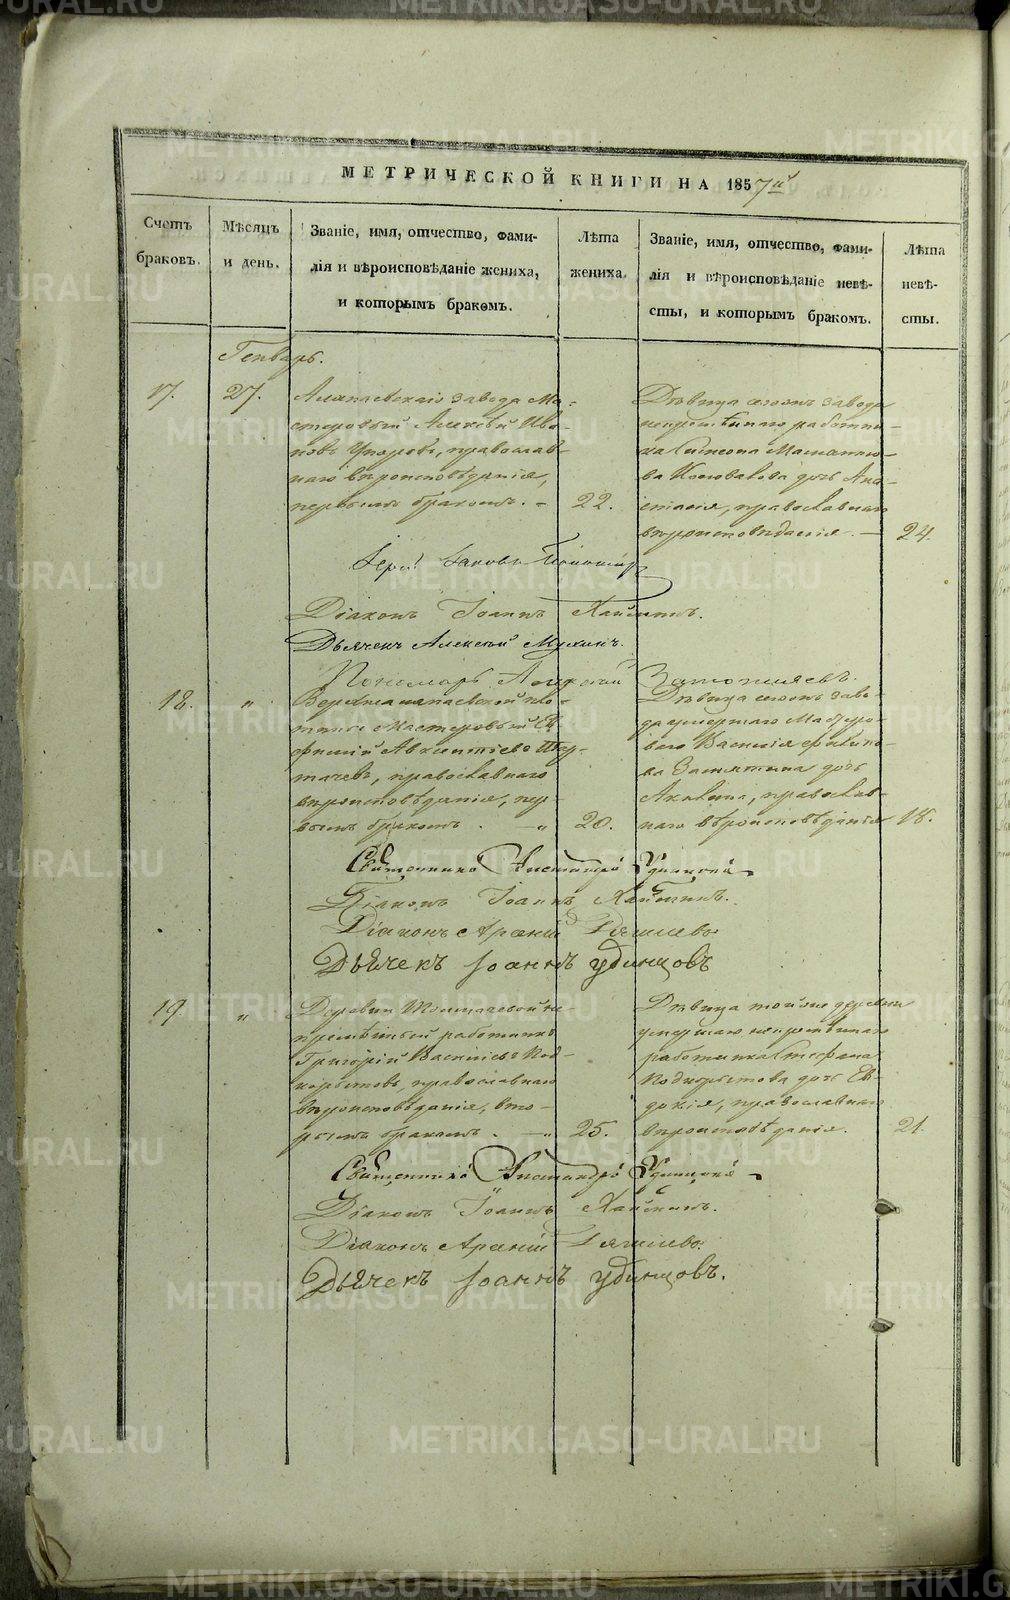 МЕТРИЧЕСКОЙ КНИГИ НА 1857й
Счетъ браковъ.
Мѣсяцъ и день.
Званіе, имя, отчество, фами-
лія и вѣроисповѣданіе жениха,
и которымъ бракомъ.
Лѣта жениха.
Званіе, имя, отчество, фами-
лія и вѣроисповѣданіе невѣ-
сты, и которымъ бракомъ.
Лѣта невѣ-
сты.
Генварь.
17.
27.
Алапаевскаго завода Ма-
стеровый Алексѣй Ива-
новъ православ-
наго вѣроисповѣданія,
первымъ бракомъ. -
22.
Дѣвица сегожъ завода
непремѣннаго работни-
ка Симеона
дочь Ана-
стасія, православнаго
вѣроисповѣданія. —
24.
Іерей Іаковъ
Діаконъ Іоаннъ
Дьячекъ Алексѣй Мухинъ.
Пономарь
18.
"
Верхнеалапаевской
Мастеровый Ев-
фимій Авксентіевъ
православнаго
вѣроисповѣданія, пер-
вымъ бракомъ. — "
20.
Дѣвица сегожъ заво-
да умершаго Мастеро-
ваго Василія Филипо-
ва Замятина дочь
Акилина, православ-
наго вѣроисповѣданія
18.
Священникъ Удинцовъ
Діаконъ Іоаннъ
Діаконъ Арсеній
Дьячекъ Іоаннъ Удинцовъ
19.
"
Деревни Толмачевой не-
премѣнный работникъ
Григорій Васильевъ Под-
корытовъ, православнаго
вѣроисповѣданія, вто-
рымъ бракомъ. — "
25.
Дѣвица той же деревни
умершаго непремѣннаго
работника Стефана
Подкорытова дочь Ев-
докія, православнаго
вѣроисповѣданія.
21.
Священникъ Удинцовъ
Діаконъ Іоаннъ
Діаконъ Арсеній
Дьячекъ Іоаннъ Удинцовъ.
METRIKI.GASO-URAL.RU